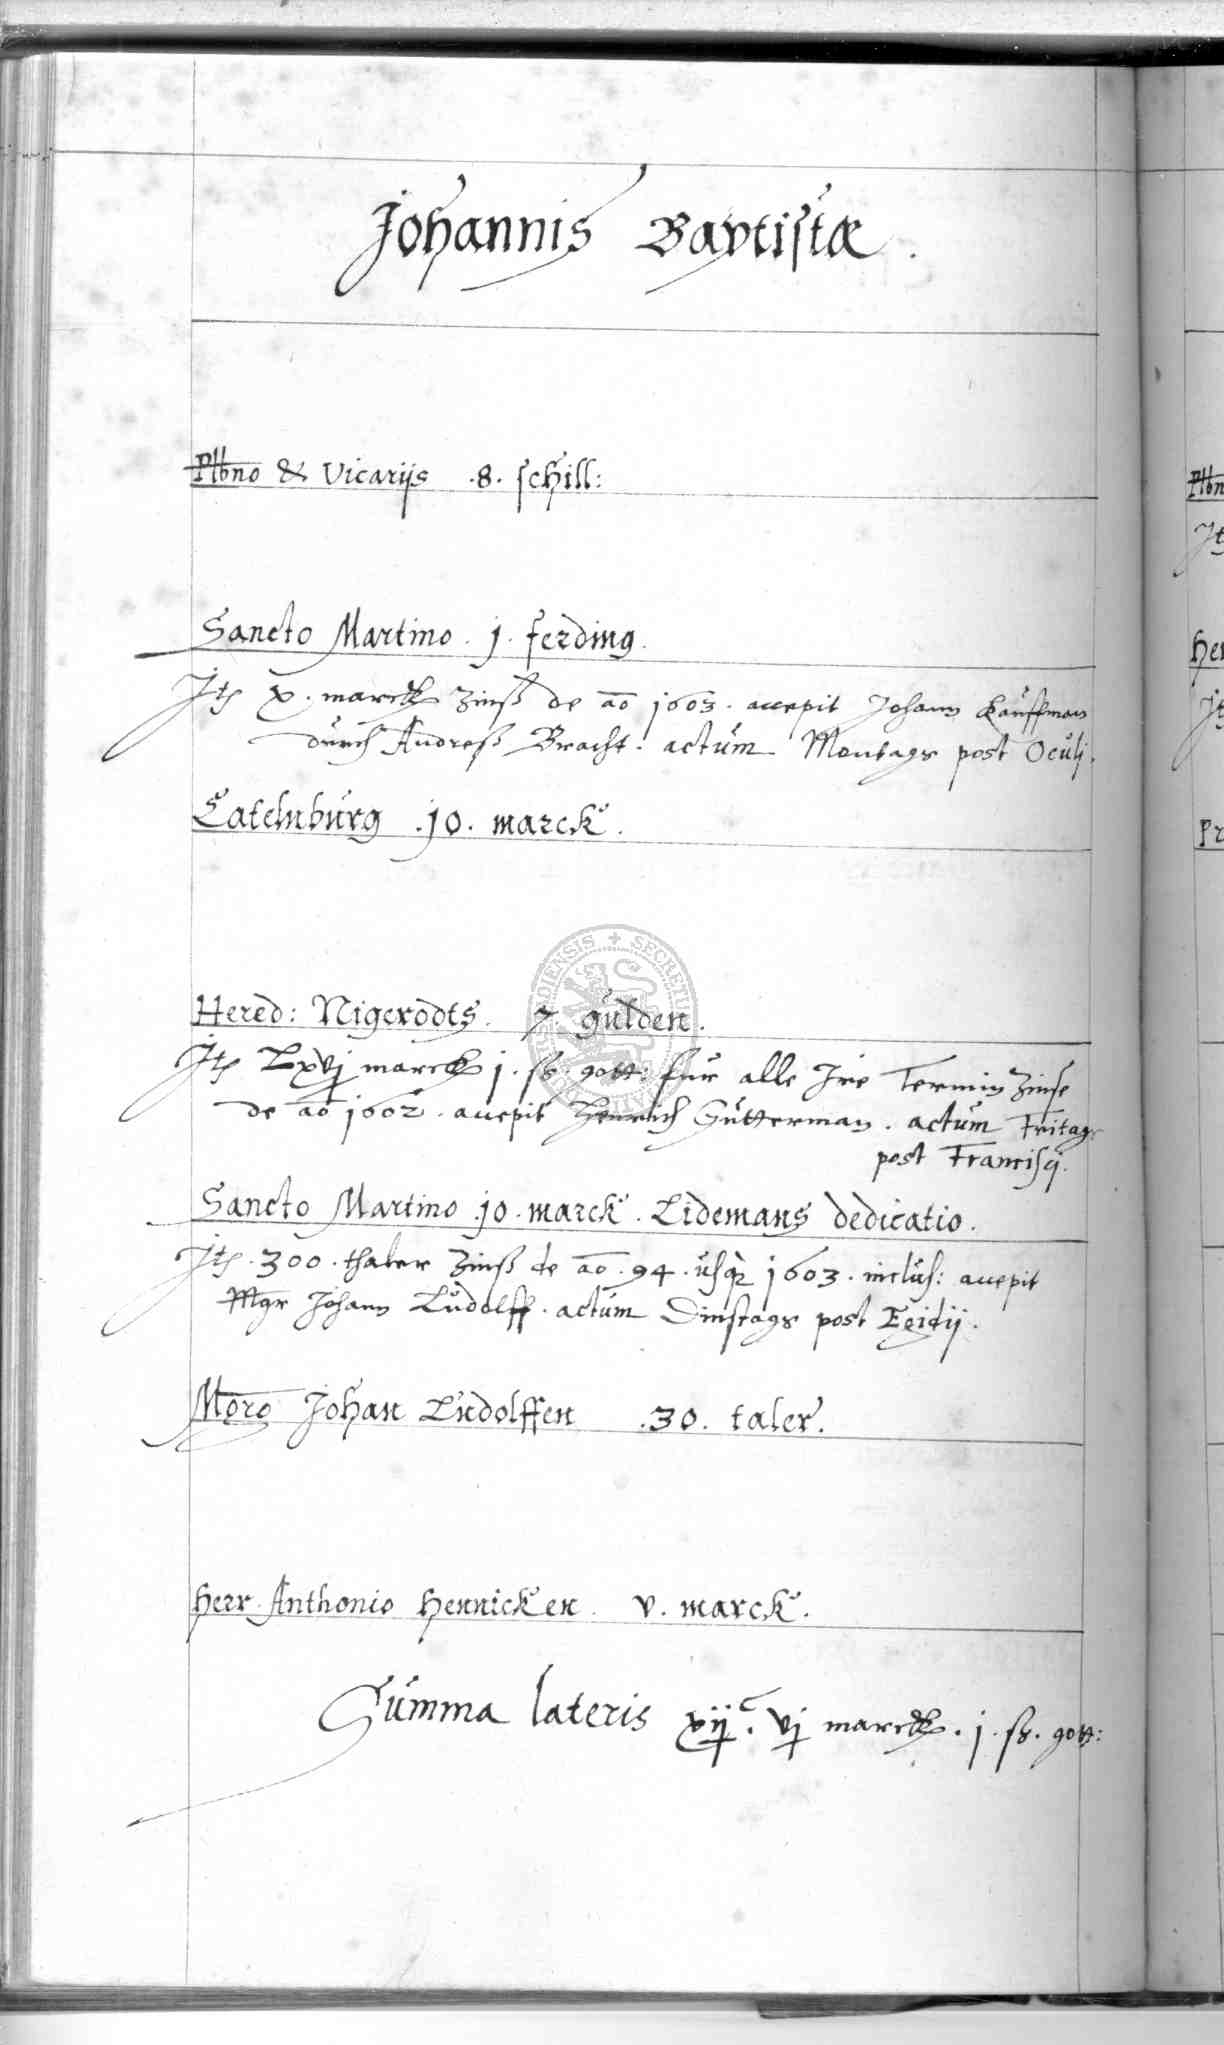 Johannis Baptistæ.
Plbno & Vicarijs .8. schill:
Sancto Martino . j . ferding.
Itz x . marck Zinß de ao 1603 . accepit Johann Kauffman
durch Andreß Bracht . actum Montags post Oculj.
Catelnburg .10. marck.
Hered: Nigerodts . 7 . gulden.
Itz Lxvj marck j . ß . gott: fur alle Ire Termin Zinse
de ao 1602 . accepit Henrich Gutterman . actum Fritags
post Francisci.
Sancto Martino 10 . marck . Lidemans dedicatio.
Itz . 300 . thaler Zinß de ao . 94 . usq 1603 . inclus: accepit
Mgr Johann Ludolff . actum Dinstags post Egidij.
Mgro Johan Ludolffen .30. taler.
Herr Anthonio Hennicken . v . marck.
Summa lateris xijc . vj marck . j . ß . gott:
SECRETU
Plbn
It
Her
It